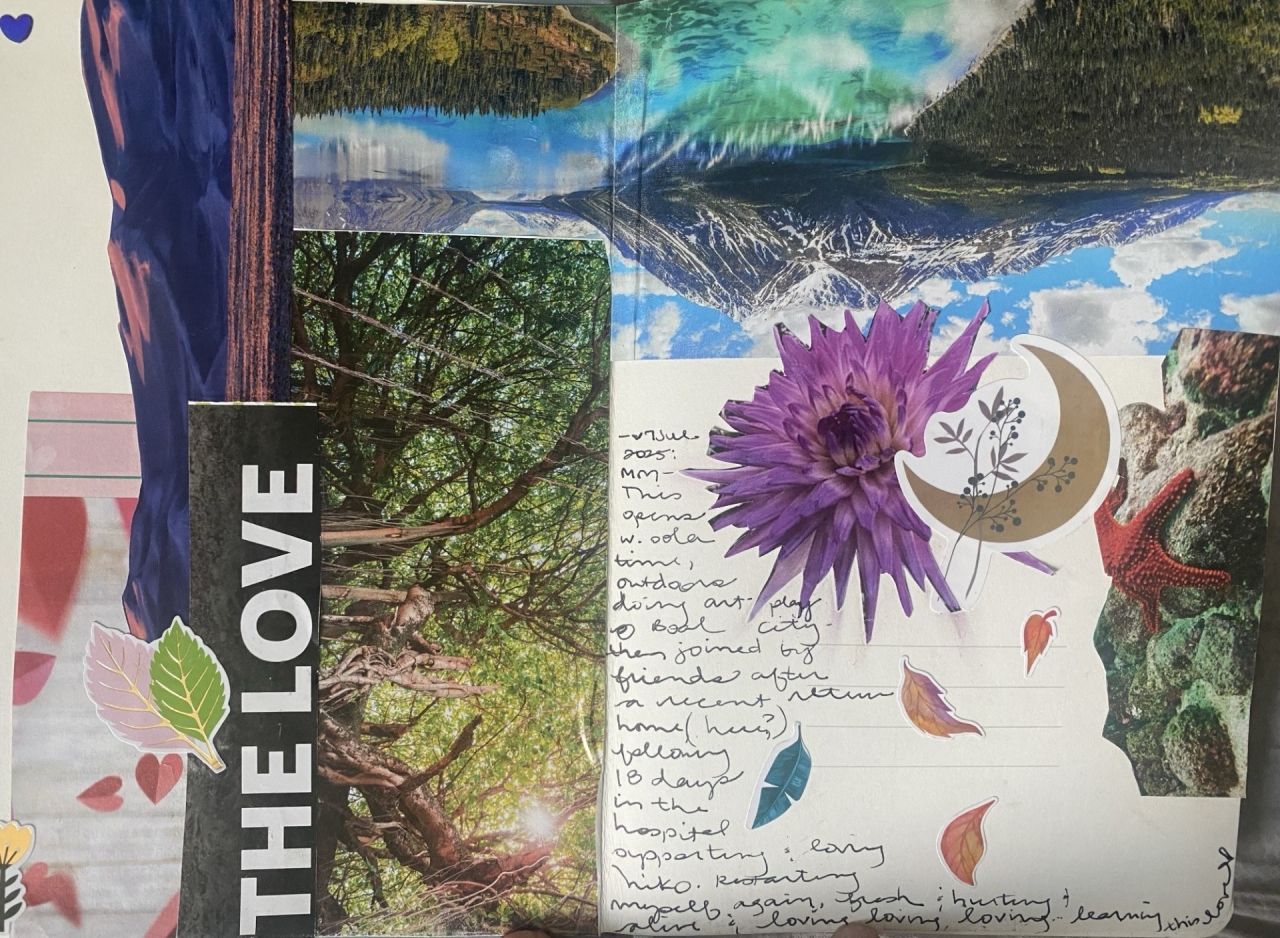 THE LOVE
7 Jul
2025:
MM-
This
opens
w. sola
time,
outdoors
doing art-
Beal city-
then joined by
friends after
a recent return
home (here?)
following
18 days
in the
hospital
supporting & loving
hiko. Restarting
myself again, fresh & hurting &
alive & loving loving loving- learning this